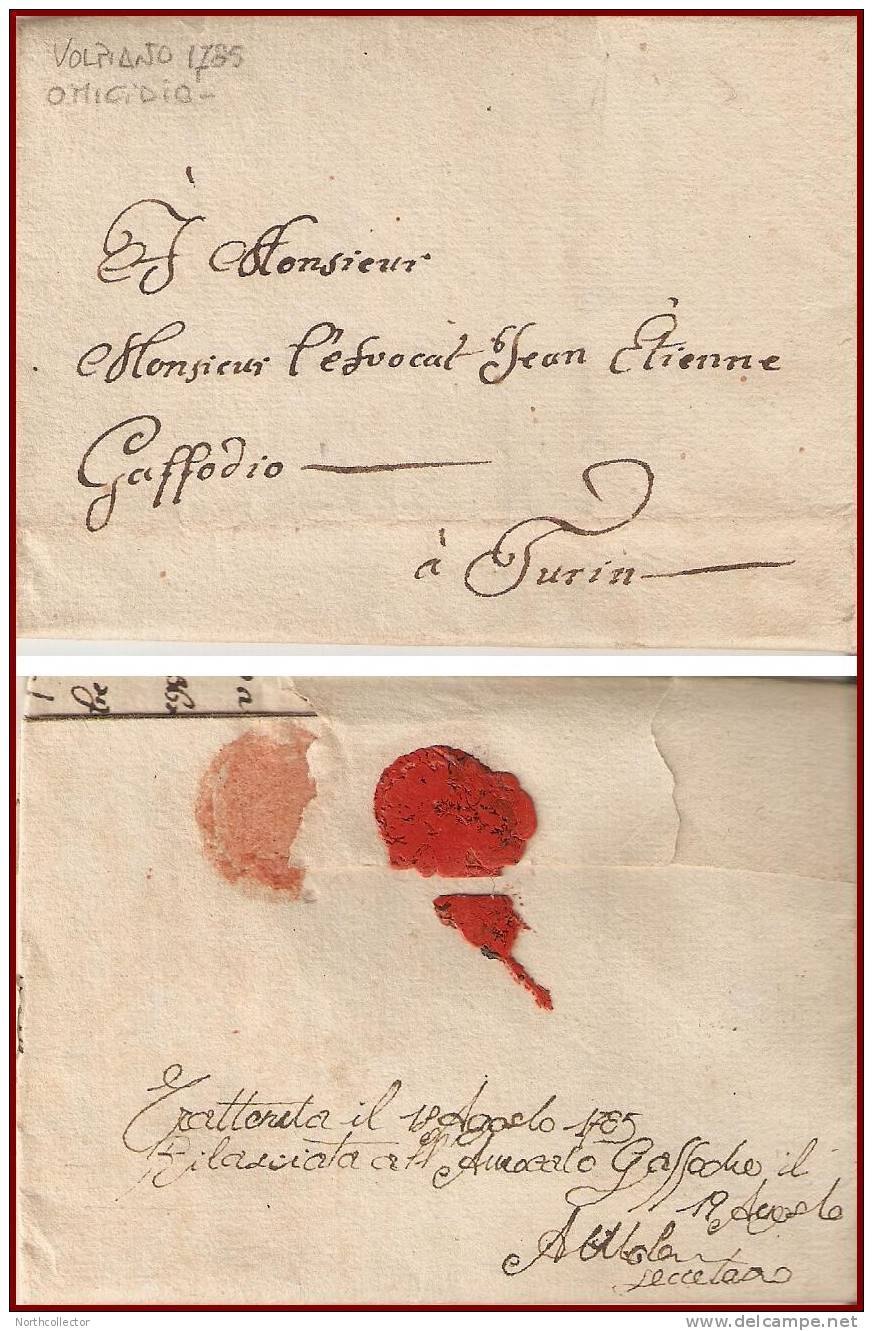 VOLPIANO 1785
OMICIDIO -
À Monsieur
Monsieur l'Avocat Jean Étienne
Gaffodio
à Turin
Trattenuta il 18 Agosto 1785
Rilasciata all' Avvocato Gaffodio il
19 Agosto
Secretaro
Northcollector
www.delcampe.net